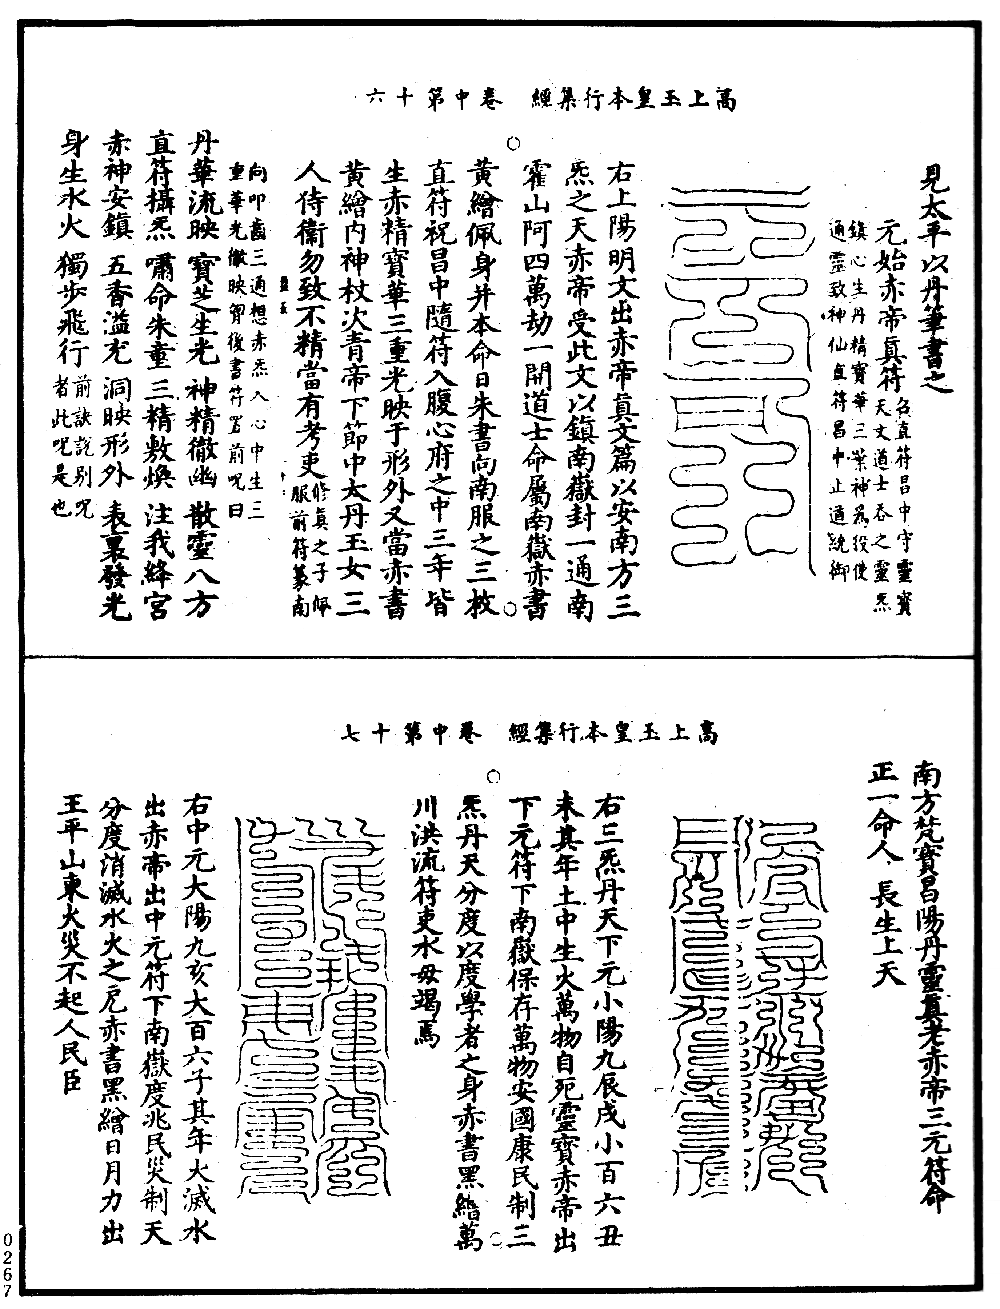 高上玉皇本行集經　卷中第十六
見太平以丹筆書之
元始赤帝真符名直符昌中守靈寶
天文道士吞之靈炁
鎮心生丹精寶華三葉神為役使
通靈致神仙直符昌中止通統御
右上陽明文出赤帝真文篇以安南方三
炁之天赤帝受此文以鎮南嶽封一通南
霍山阿四萬劫一開道士命屬南嶽赤書
黃繒佩身并本命日朱書向南服之三枚
直符祝昌中隨符入腹心府之中三年皆
生赤精寶華三重光映于形外又當赤書
黃繒內神杖次青帝下節中太丹玉女三
人侍衛勿致不精當有考吏修真之子佩
服前符篆南
向叩齒三通想赤炁入心中生三
重華光徹映智後書符置前呪曰
丹華流映　寶芝生光　神精徹幽　散靈八方
直符攝炁　嘯命朱童　三精敷煥　注我絳宮
赤神安鎮　五香溢充　洞映形外　表裏發光
身生水火　獨步飛行前訣說別呪
者此呪是也
高上玉皇本行集經　卷中第十七
南方梵寶昌陽丹靈真老赤帝三元符命
正一命人　長生上天
右三炁丹天下元小陽九辰戌小百六丑
未其年土中生火萬物自死靈寶赤帝出
下元符下南嶽保存萬物安國康民制三
炁丹天分度以度學者之身赤書黑繒萬
川洪流符吏水毋竭焉
右中元大陽九亥大百六子其年大滅水
出赤帝出中元符下南嶽度兆民災制天
分度消滅水火之厄赤書黑繒日月力出
王平山東火災不起人民臣
0267